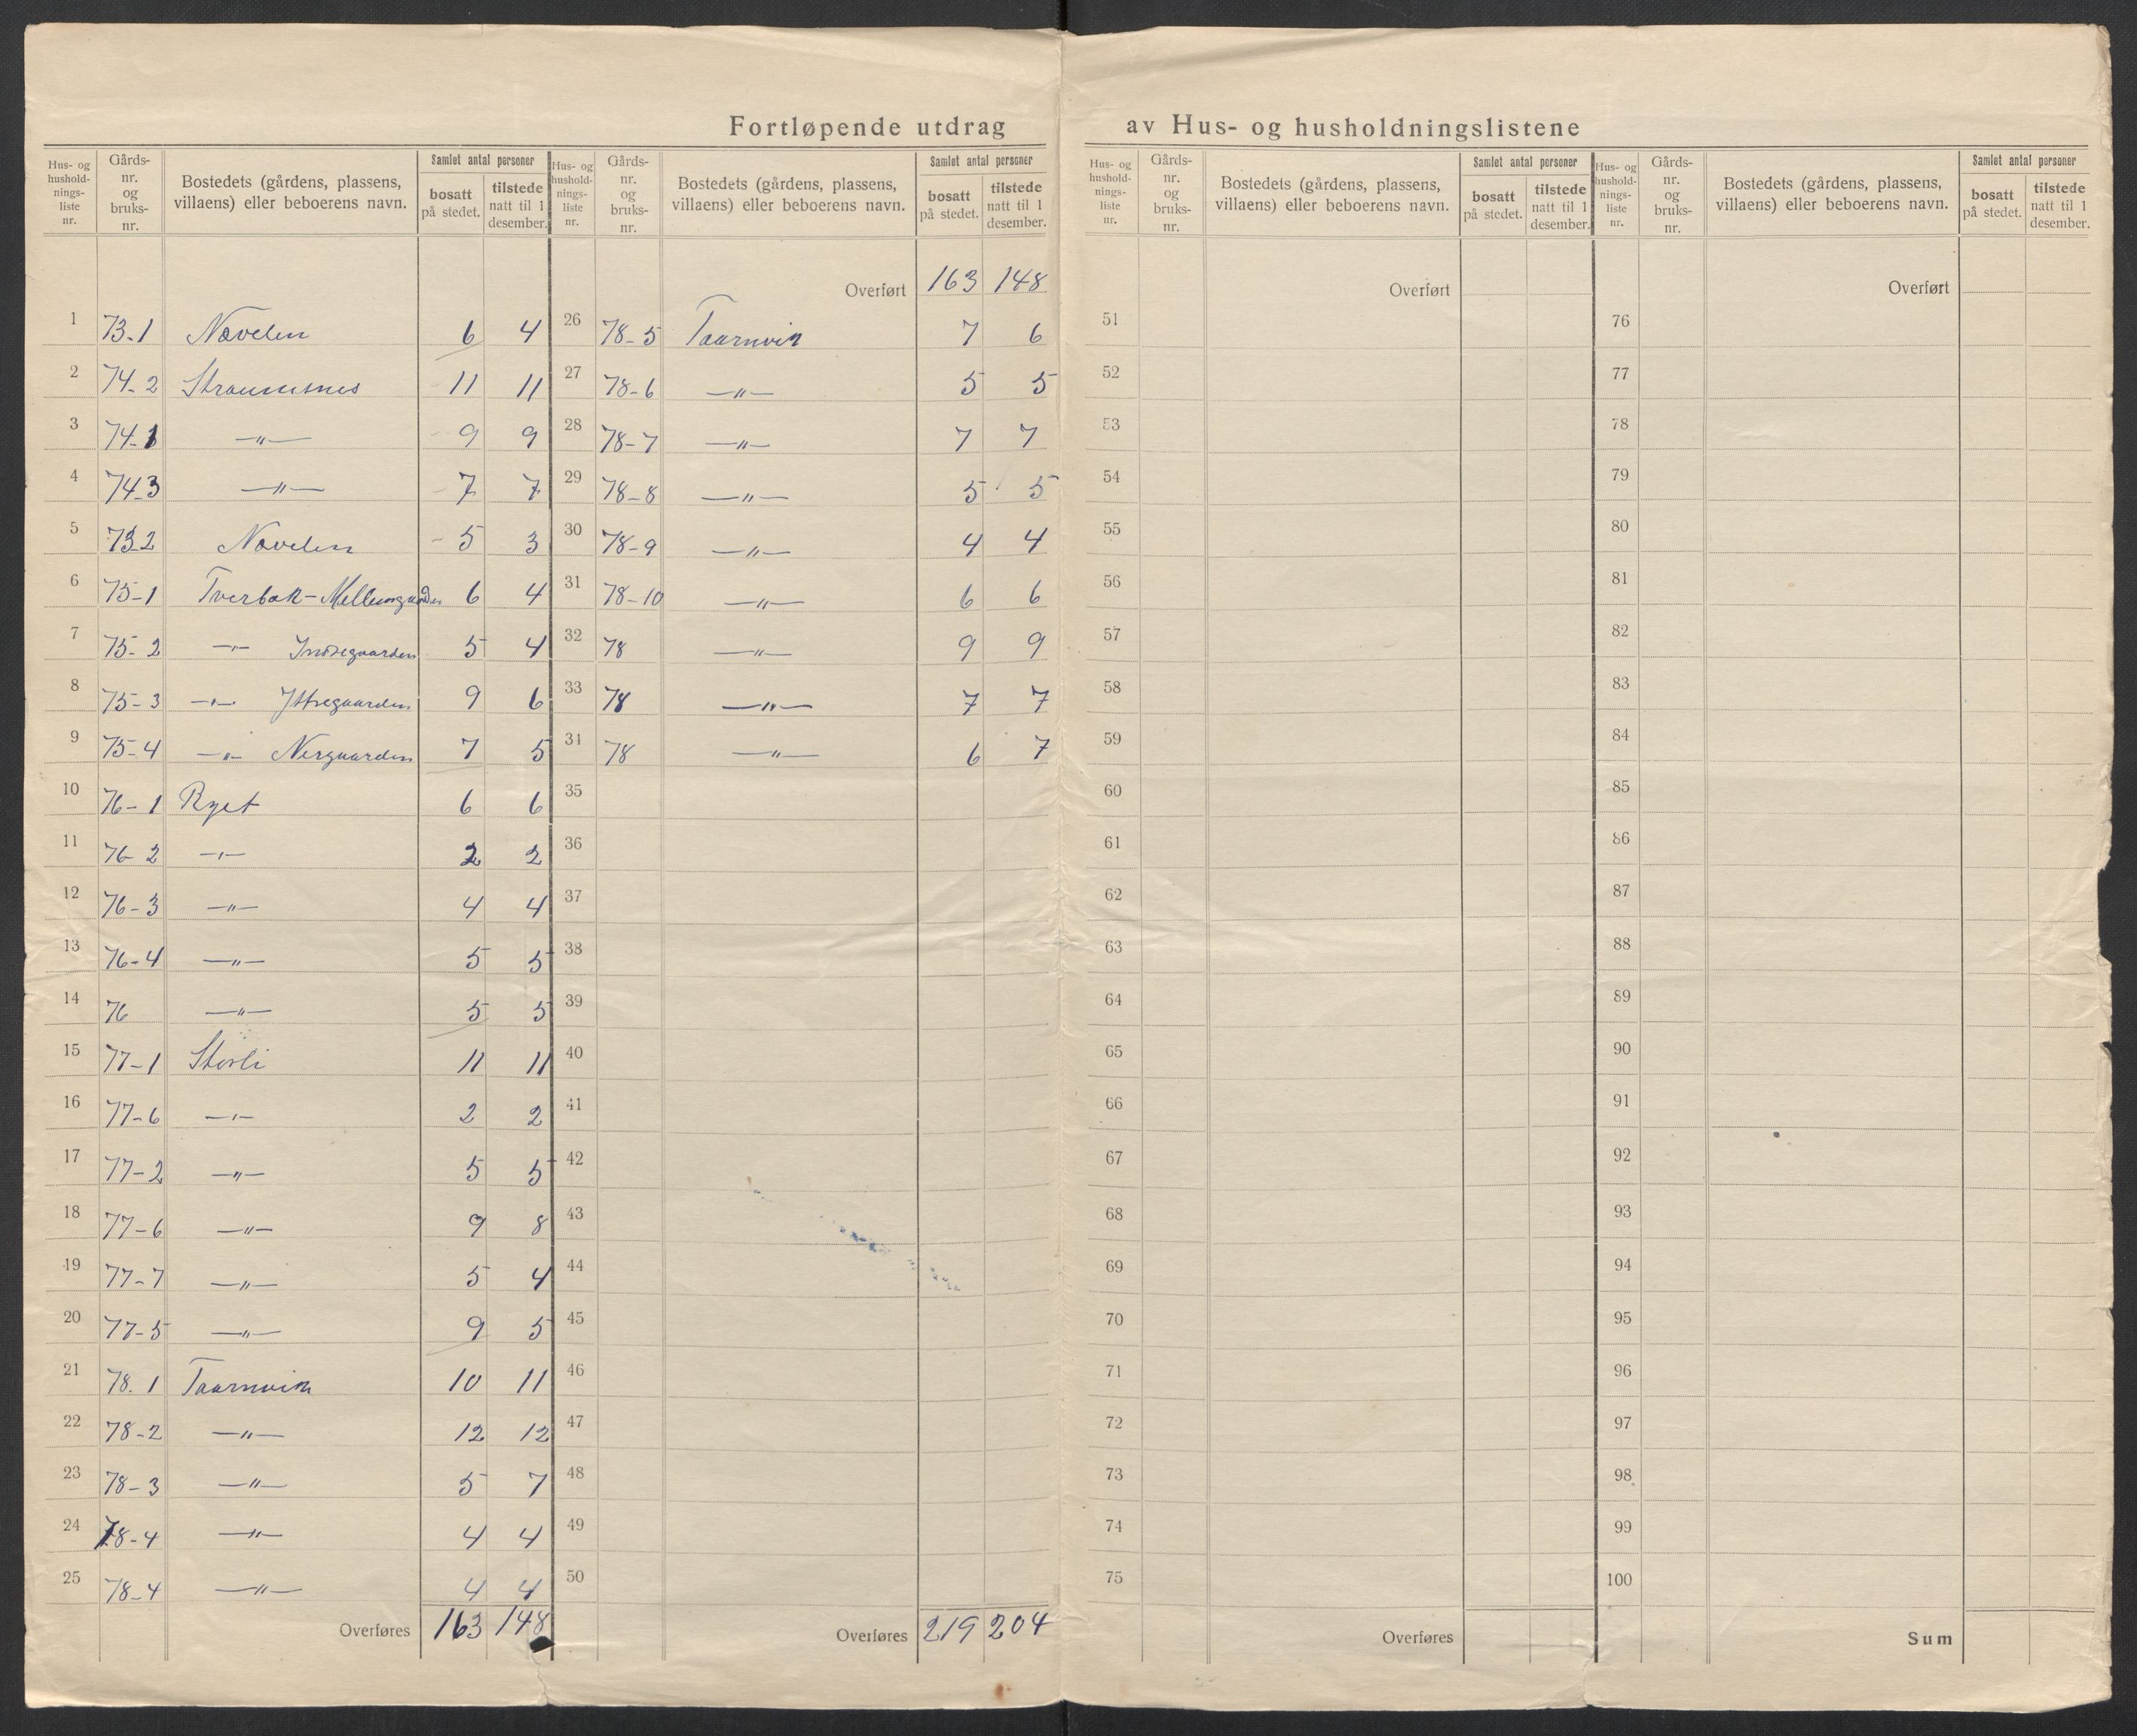 Fortløpende utdrag av Hus- og husholdningslistene
Hus- og hushold- nings- liste nr. | Gårds- nr. og bruks- nr. | Bostedets (gårdens, plassens, villaens) eller beboerens navn. | Samlet antal personer | bosatt på stedet. | tilstede natt til 1 desember.
1 73-1 Nøvelen 6 4
2 74-2 Straumsnes 11 11
3 74-1 —"— 9 9
4 74-3 —"— 7 7
5 73-2 Nøvelen 5 3
6 75-1 Tverbak-Mellumgaarden 6 4
7 75-2 —"— Indregaarden 5 4
8 75-3 —"— Yttregaarden 9 6
9 75-4 —"— Nergaarden 7 5
10 76-1 Ryet 6 6
11 76-2 —"— 2 2
12 76-3 —"— 4 4
13 76-4 —"— 5 5
14 76 —"— 5 5
15 77-1 Storli 11 11
16 77-6 —"— 2 2
17 77-2 —"— 5 5
18 77-6 —"— 9 8
19 77-7 —"— 5 4
20 77-5 —"— 9 5
21 78.1 Taarnvik 10 11
22 78-2 —"— 12 12
23 78-3 —"— 5 7
24 78-4 —"— 4 4
25 78-4 —"— 4 4
Overføres 163 148
Hus- og hushold- nings- liste nr. | Gårds- nr. og bruks- nr. | Bostedets (gårdens, plassens, villaens) eller beboerens navn. | Samlet antal personer | bosatt på stedet. | tilstede natt til 1 desember.
Overført 163 148
26 78-5 Taarnvik 7 6
27 78-6 —"— 5 5
28 78-7 —"— 7 7
29 78-8 —"— 5 5
30 78-9 —"— 4 4
31 78-10 —"— 6 6
32 78 —"— 9 9
33 78 —"— 7 7
34 78 —"— 6 7
35
36
37
38
39
40
41
42
43
44
45
46
47
48
49
50
Overføres 219 204
Hus- og hushold- nings- liste nr. | Gårds- nr. og bruks- nr. | Bostedets (gårdens, plassens, villaens) eller beboerens navn. | Samlet antal personer | bosatt på stedet. | tilstede natt til 1 desember.
Overført
51
52
53
54
55
56
57
58
59
60
61
62
63
64
65
66
67
68
69
70
71
72
73
74
75
Overføres
Hus- og hushold- nings- liste nr. | Gårds- nr. og bruks- nr. | Bostedets (gårdens, plassens, villaens) eller beboerens navn. | Samlet antal personer | bosatt på stedet. | tilstede natt til 1 desember.
Overført
76
77
78
79
80
81
82
83
84
85
86
87
88
89
90
91
92
93
94
95
96
97
98
99
100
Sum